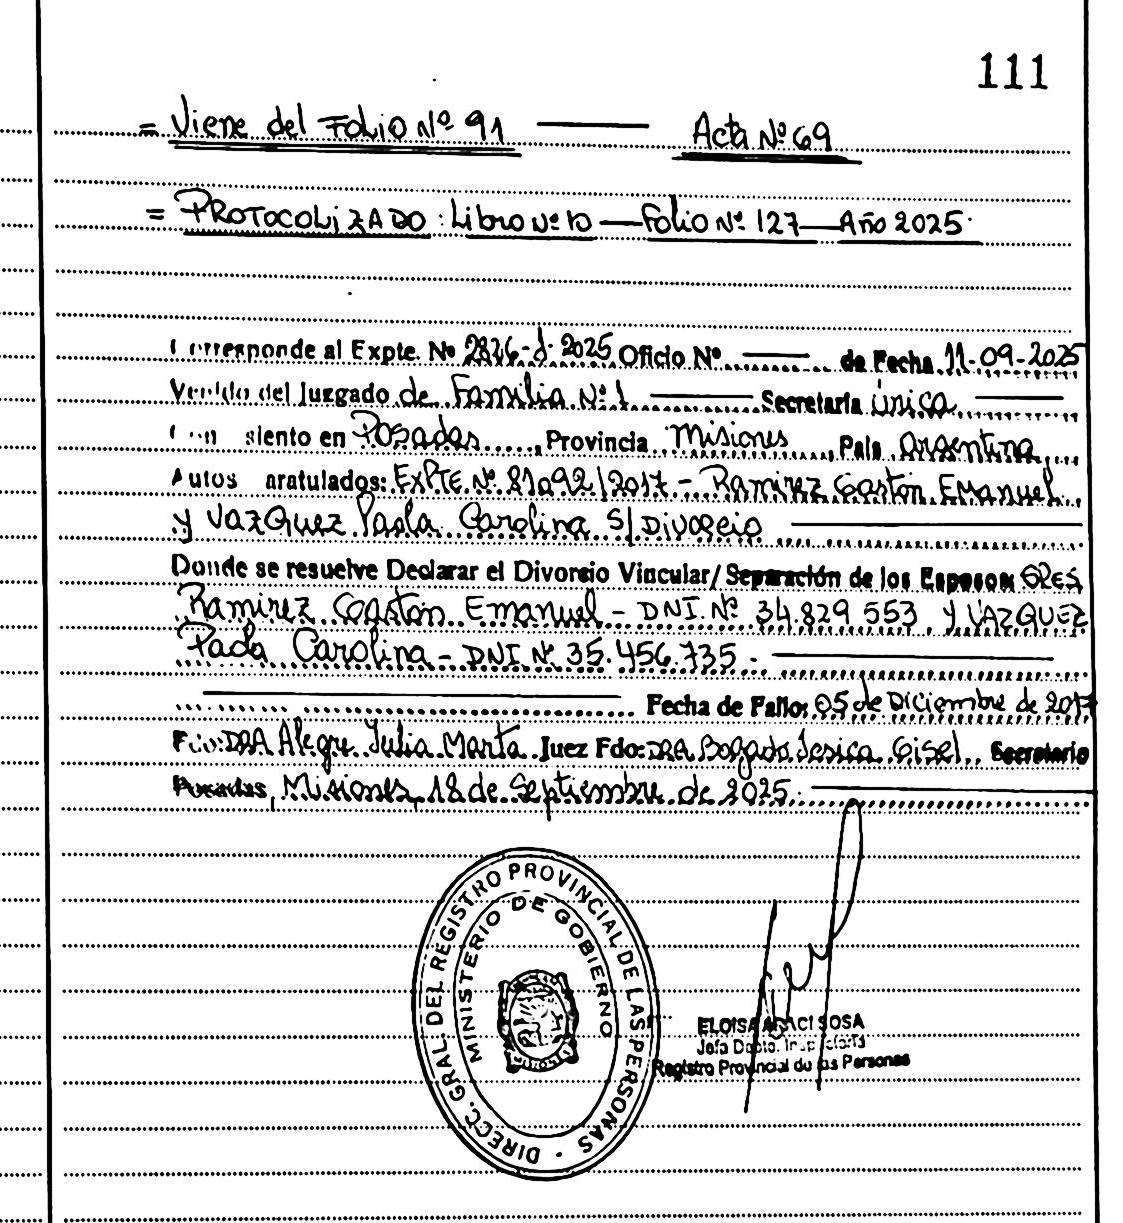 111
= Viene del Folio Nº 91 — Acta Nº 69
= PROTOCOLIZADO: Libro Nº 10 — Folio Nº 127 — Año 2025.
Corresponde al Expte. Nº 2826-d-2025 Oficio Nº — de Fecha 11-09-2025
Venido del Juzgado de Familia Nº 1 — Secretaría Única —
Con siento en Posadas, Provincia Misiones, País Argentina
Autos aratulados: EXPTE. Nº 81092/2017 - Ramirez Gaston Emanuel
y VAZQUEZ Paola Carolina S/ Divorcio —
Donde se resuelve Declarar el Divorcio Vincular/ Separación de los Esposos: SRES
Ramirez Gastón Emanuel - DNI. Nº 34.829 553 y VAZQUEZ
Paola Carolina - DNI Nº 35.456.735. —
— Fecha de Fallo: 05 de Diciembre de 2017
Fdo: DRA Alegre Julia Marta Juez Fdo: DRA Bogado Jesica Gisel. Secretario
Posadas, Misiones, 18 de Septiembre de 2025. —
DIRECC. GRAL. DEL REGISTRO PROVINCIAL DE LAS PERSONAS
MINISTERIO DE GOBIERNO
ELOISA ARACI SOSA
Jefa Dpto.
Registro Provincial de las Personas